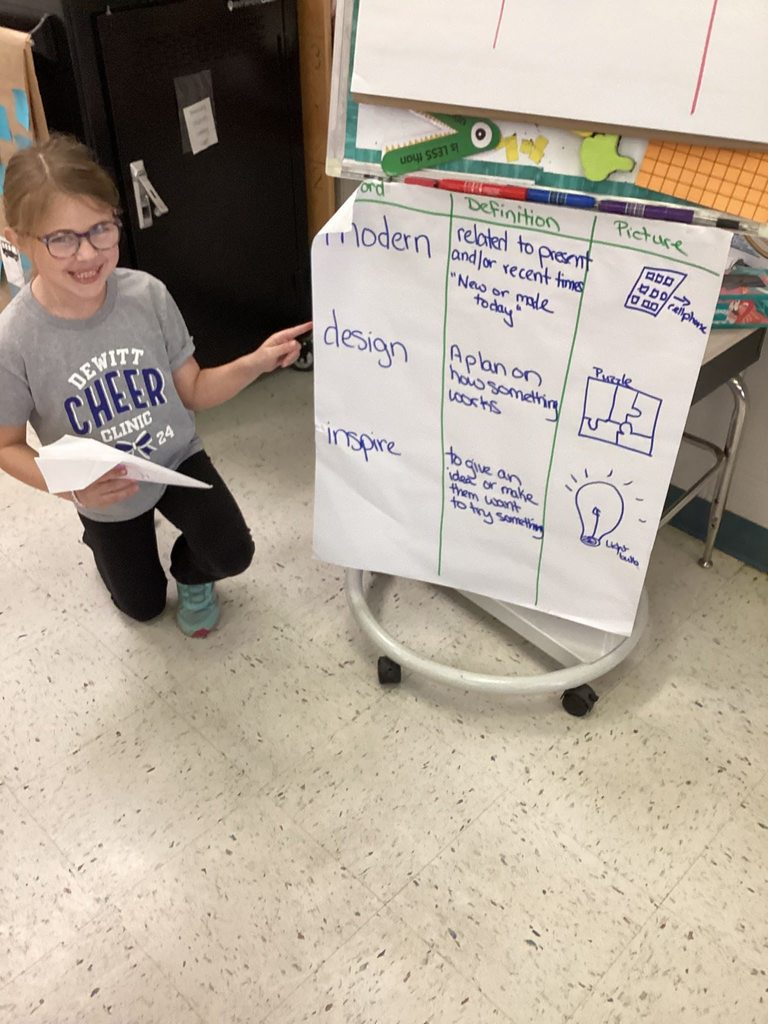 is LESS than
ord
Definition
Picture
modern
related to present
and/or recent times
"New or made
today"
cellphone
design
A plan on
how something
works
Puzzle
inspire
to give an
idea or make
them want
to try something
Light
bulb
DEWITT
CHEER
CLINIC
24